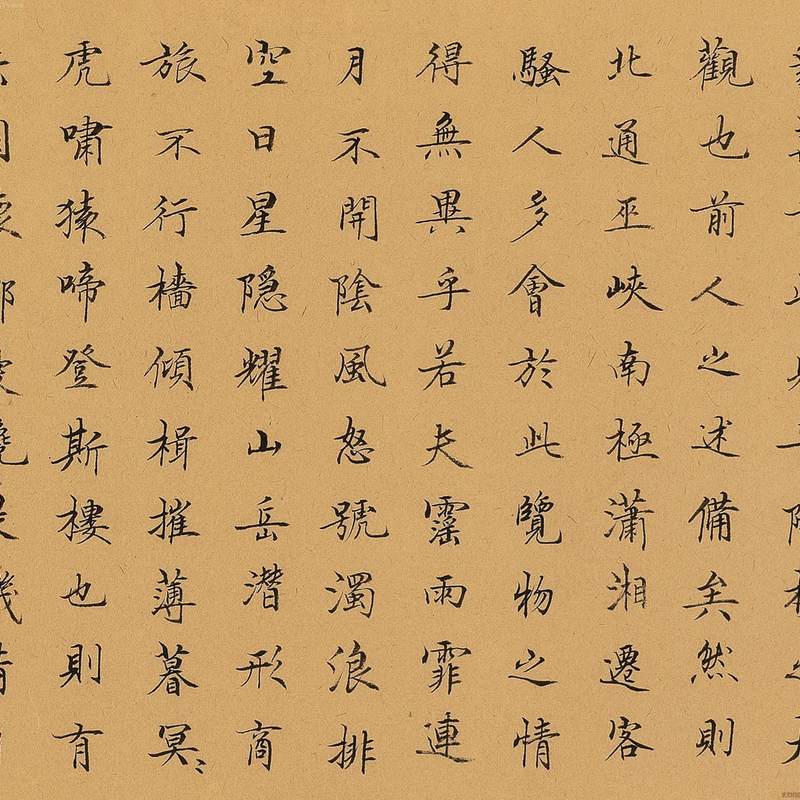 觀也前人之述備矣然則
北通巫峽南極瀟湘遷客
騷人多會於此覽物之情
得無異乎若夫霪雨霏連
月不開陰風怒號濁浪排
空日星隱耀山岳潛形商
旅不行檣傾楫摧薄暮冥〻
虎嘯猿啼登斯樓也則有